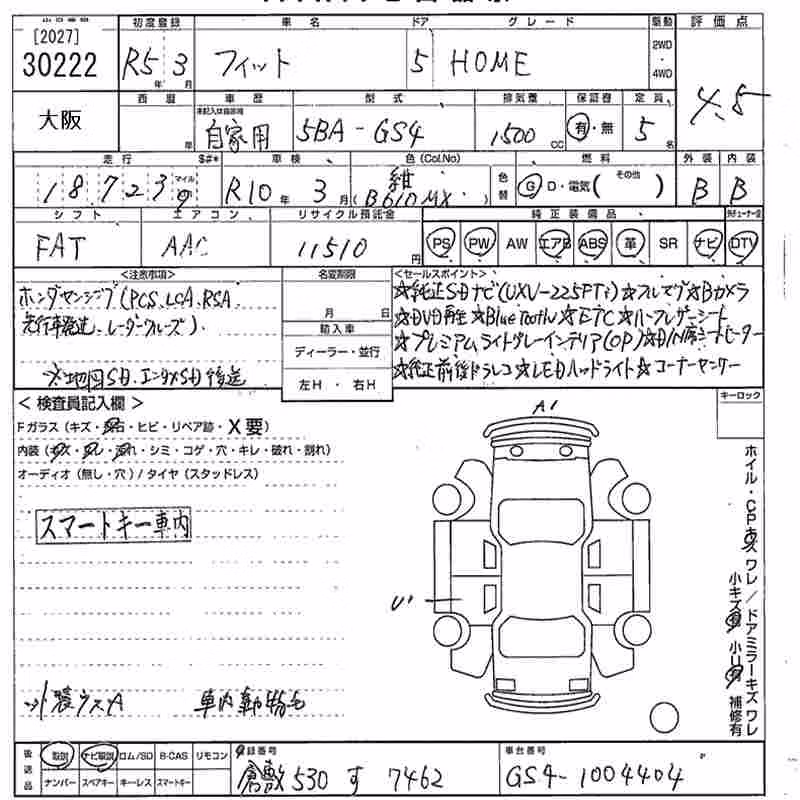 [2027]
30222
大阪
初度登録
R5 3
年 月
車名
フィット
ドア
5
グレード
HOME
駆動
2WD
・
4WD
評価点
4.5
西暦
年
車歴
未記入は自家用
自家用
型式
5BA-GS4
排気量
1,500
CC
保証書
有・無
定員
5
名
走行
$#*
18,723
マイル
車検
R10 年 3 月
色(Col.No)
紺
(B610MX)
色替
燃料
G D・電気( その他 )
外装
B
内装
B
シフト
FAT
エアコン
AAC
リサイクル預託金
11510
円
純正装備品
PS PW AW エアB ABS 革 SR ナビ DTV
<注意事項>
ホンダセンシング(PCS.LCA.RSA
先行車発進.レーダークルーズ).
※地図SD.エンタメSD後送
名変期限
月 日
輸入車
ディーラー・並行
左H ・ 右H
<セールスポイント>
☆純正SDナビ(UXU-225FTi)☆フルセグ☆Bカメラ
☆DVD再生☆Bluetooth☆ETC☆ハーフレザーシート
☆プレミアムライトグレーインテリア(OP)☆D/N席シートヒーター
☆純正前後ドラレコ☆LEDヘッドライト☆コーナーセンサー
キーロック
<検査員記入欄>
Fガラス(キズ・飛石・ヒビ・リペア跡・X要)
内装(キズ・スレ・汚れ・シミ・コゲ・穴・キレ・破れ・割れ)
オーディオ(無し・穴)/タイヤ(スタッドレス)
スマートキー車内
車内動物毛
A1
U1
ホイル・CPキズ ワレ/ドアミラーキズ ワレ
小キズ凹 小U凹 補修有
後送品
取説 ナビ取説 ロム/SD B-CAS リモコン
ナンバー スペアキー キーレス スマートキー
登録番号
倉敷 530 す 7462
車台番号
GS4-1004404